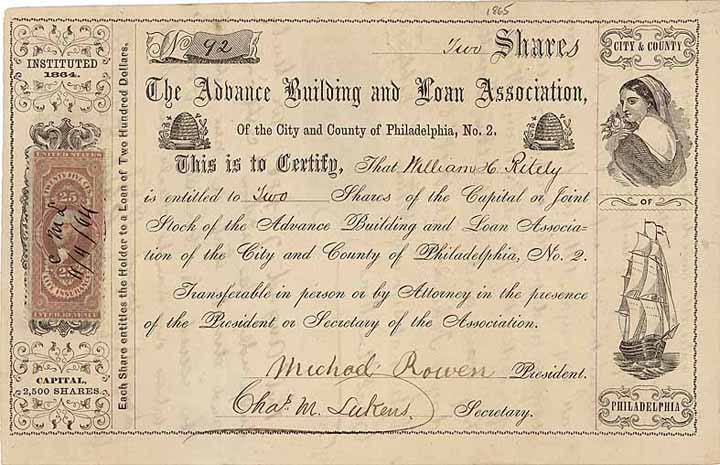 1865
No 92
Two Shares
The Advance Building and Loan Association,
Of the City and County of Philadelphia, No. 2.
This is to Certify, That William H. Ritely
is entitled to Two Shares of the Capital or Joint
Stock of the Advance Building and Loan Associa-
tion of the City and County of Philadelphia, No. 2.
Transferable in person or by Attorney in the presence
of the President or Secretary of the Association.
Michael Rowen President.
Chas. M. Lukens. Secretary.
INSTITUTED
1864.
UNITED STATES
25
25
INTER. REVENUE
CAPITAL,
2,500 SHARES.
Each Share entitles the Holder to a Loan of Two Hundred Dollars.
CITY & COUNTY
OF
PHILADELPHIA